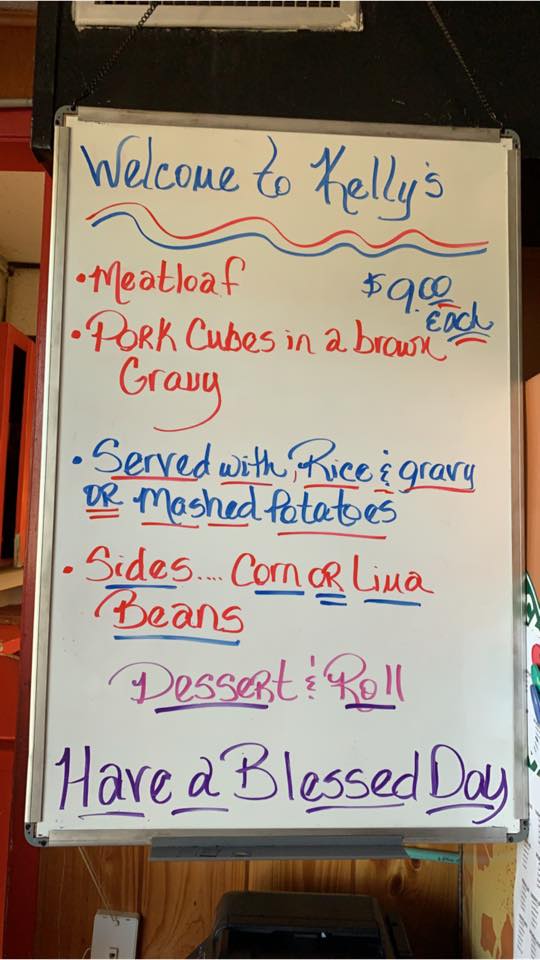 Welcome to Kelly's
• Meatloaf $9.00
Each
• Pork Cubes in a brown
Gravy
• Served with, Rice & gravy
OR Mashed Potatoes
• Sides.... Corn OR Lima
Beans
Dessert & Roll
Have a Blessed Day